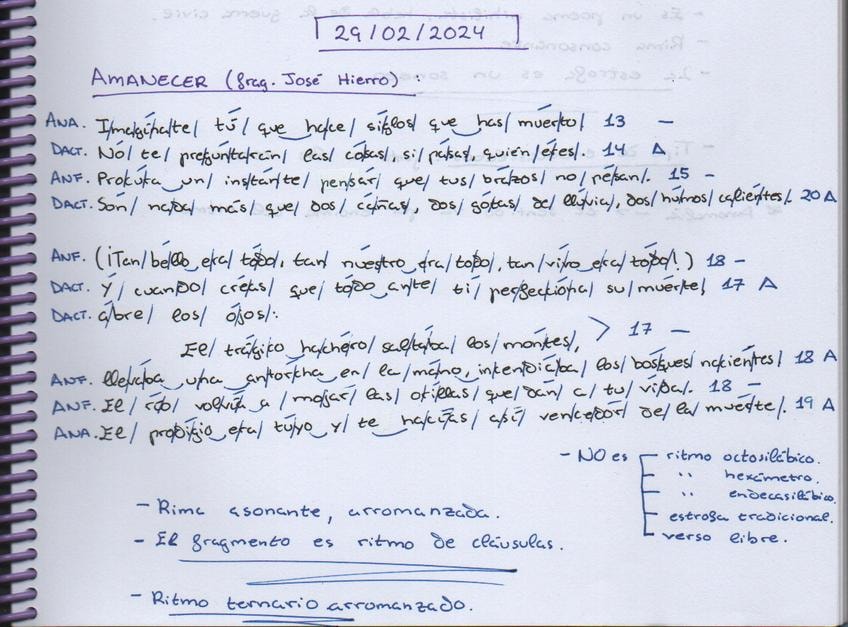 29/02/2024
AMANECER (frag. José Hierro) :
ANA. I/ma/gí/na/te/ tú/ que ha/ce/ si/glos/ que has/ muer/to/ 13 —
DACT. No/ te/ pre/gun/ta/rán/ las/ co/sas/, si/ pa/sas/, quién/ e/res/. 14 A
ANF. Pro/cu/ra un/ ins/tan/te/ pen/sar/ que/ tus/ bra/zos/ no/ pe/san/. 15 —
DACT. Son/ na/da/ más/ que/ dos/ ca/ñas/, dos/ go/tas/ de/ llu/via/, dos/ hu/mos/ ca/lien/tes/. 20 A
ANF. (¡Tan/ be/llo e/ra/ to/do/, tan/ nues/tro e/ra/ to/do/, tan/ vi/vo e/ra/ to/do/!) 18 —
DACT. Y/ cuan/do/ cre/as/ que/ to/do an/te/ ti/ per/fec/cio/na/ su/ muer/te/ 17 A
DACT. a/bre/ los/ o/jos/:
El/ trá/gi/co ha/che/ro/ sal/ta/ba/ los/ mon/tes/, > 17 —
ANF. lle/va/ba u/na an/tor/cha en/ la/ ma/no/, in/cen/dia/ba/ los/ bos/ques/ na/cien/tes/ 18 A
ANF. El/ rí/o/ vol/ví/a a/ mo/jar/ las/ o/ri/llas/ que/ dan/ a/ tu/ vi/da/. 18 —
ANA. El/ pro/di/gio e/ra/ tu/yo y/ te ha/cí/as/ a/sí/ ven/ce/dor/ de/ la/ muer/te/. 19 A
- NO es
ritmo octosilábico.
" hexámetro.
" endecasilábico.
estrofa tradicional.
verso libre.
- Rima asonante, arromanzada.
- El fragmento es ritmo de cláusulas.
- Ritmo ternario arromanzado.